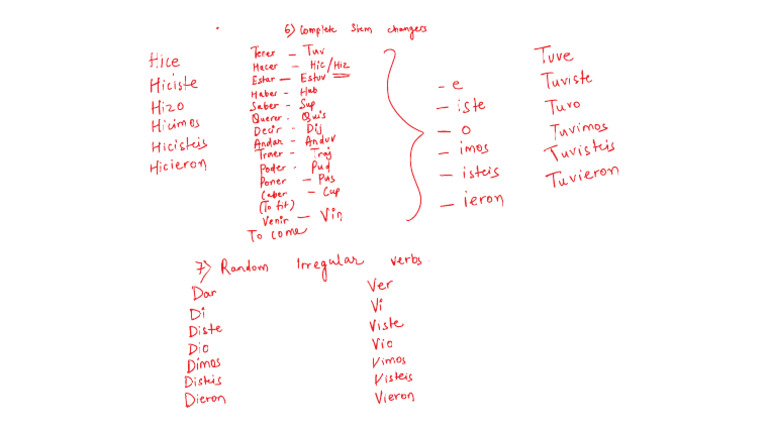 6) Complete stem changers
Hice
Hiciste
Hizo
Hicimos
Hicisteis
Hicieron
Tener - Tuv
Hacer - Hic/Hiz
Estar - Estuv
Haber - Hub
Saber - Sup
Querer - Quis
Decir - Dij
Andar - Anduv
Traer - Traj
Poder - Pud
Poner - Pus
Caber - Cup
(To fit)
Venir - Vin
To come
- e
- iste
- o
- imos
- isteis
- ieron
Tuve
Tuviste
Tuvo
Tuvimos
Tuvisteis
Tuvieron
7) Random Irregular verbs.
Dar
Di
Diste
Dio
Dimos
Disteis
Dieron
Ver
Vi
Viste
Vio
Vimos
Visteis
Vieron